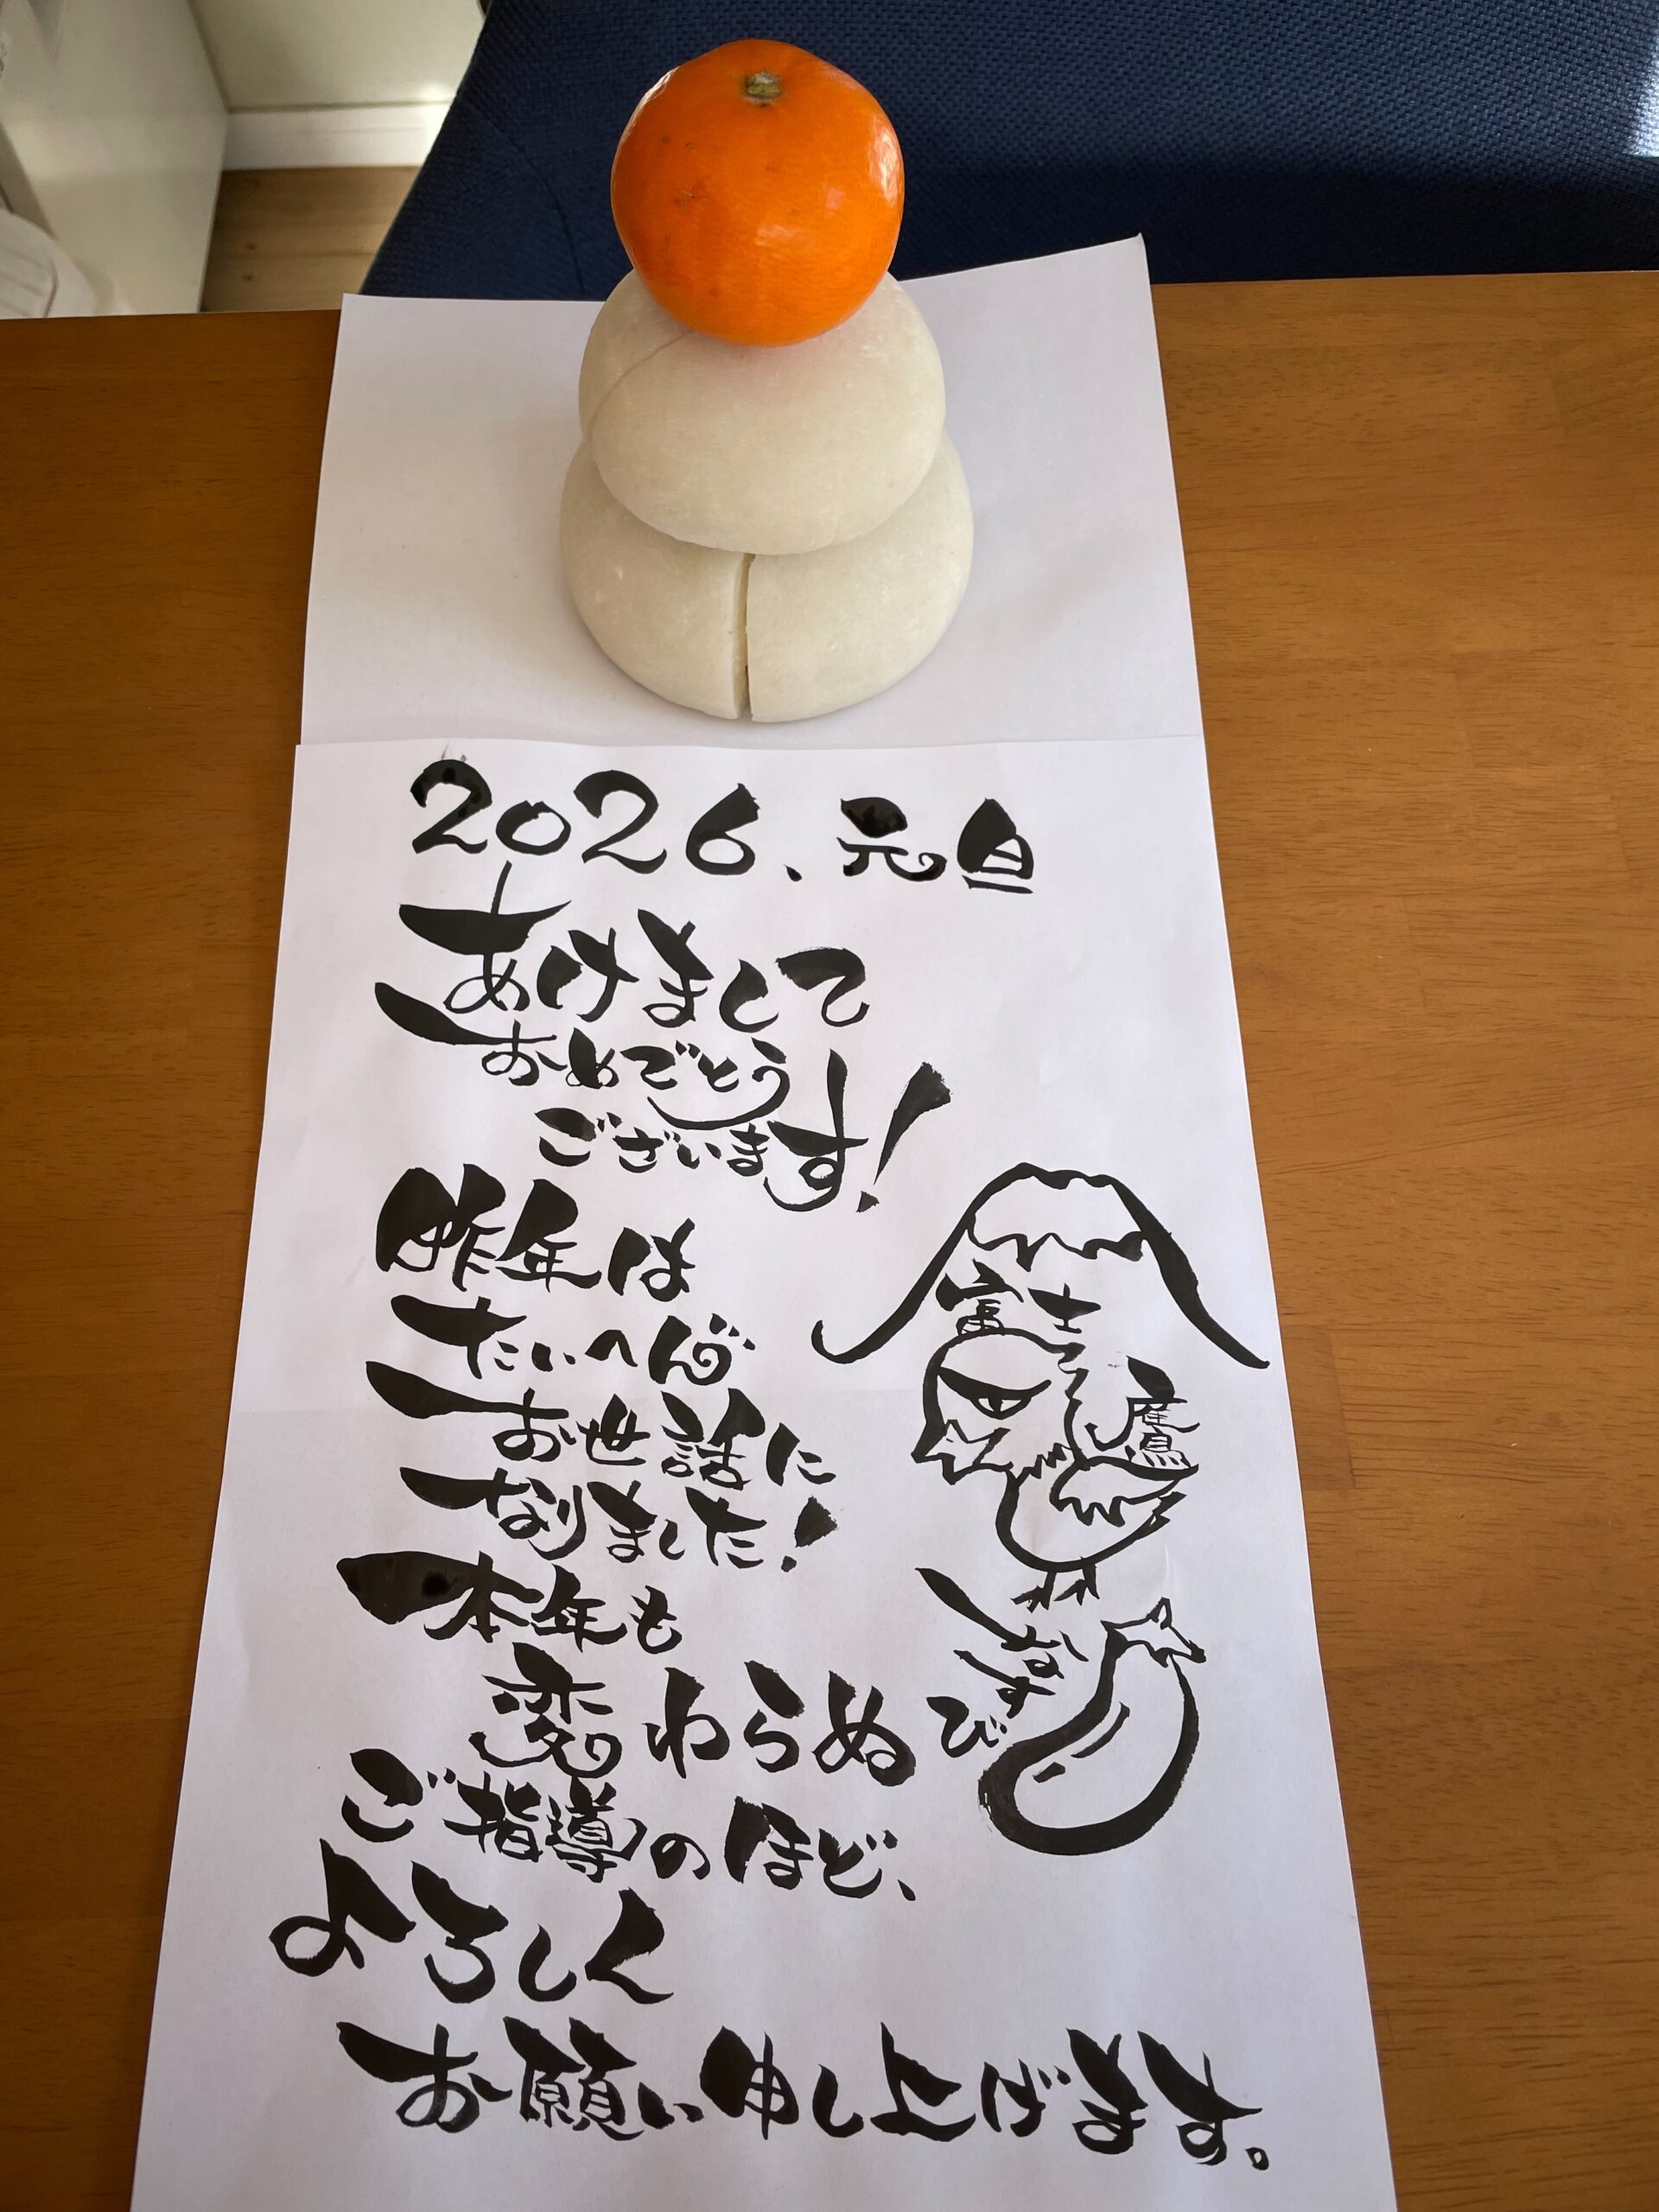 2026、元旦
あけまして
おめでとう
ございます!
昨年は
たいへん
お世話に
なりました!
本年も
変わらぬ
ご指導のほど、
よろしく
お願い申し上げます。
富士
鷹
なすび